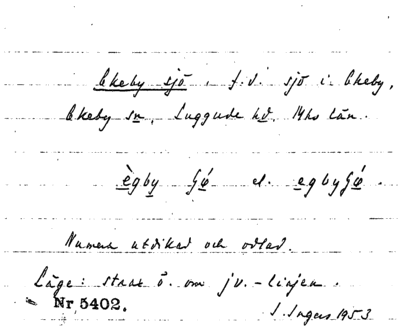 Ekeby sjö, f.d. sjö i Ekeby,
Ekeby sn, Luggude hd. Mhs län.
ègby ʃǿ el. egbyʃǿ.
Numera utdikad och odlad.
Läge: strax ö. om jv.-linjen.
Nr 5402.
S. Ingers 1953